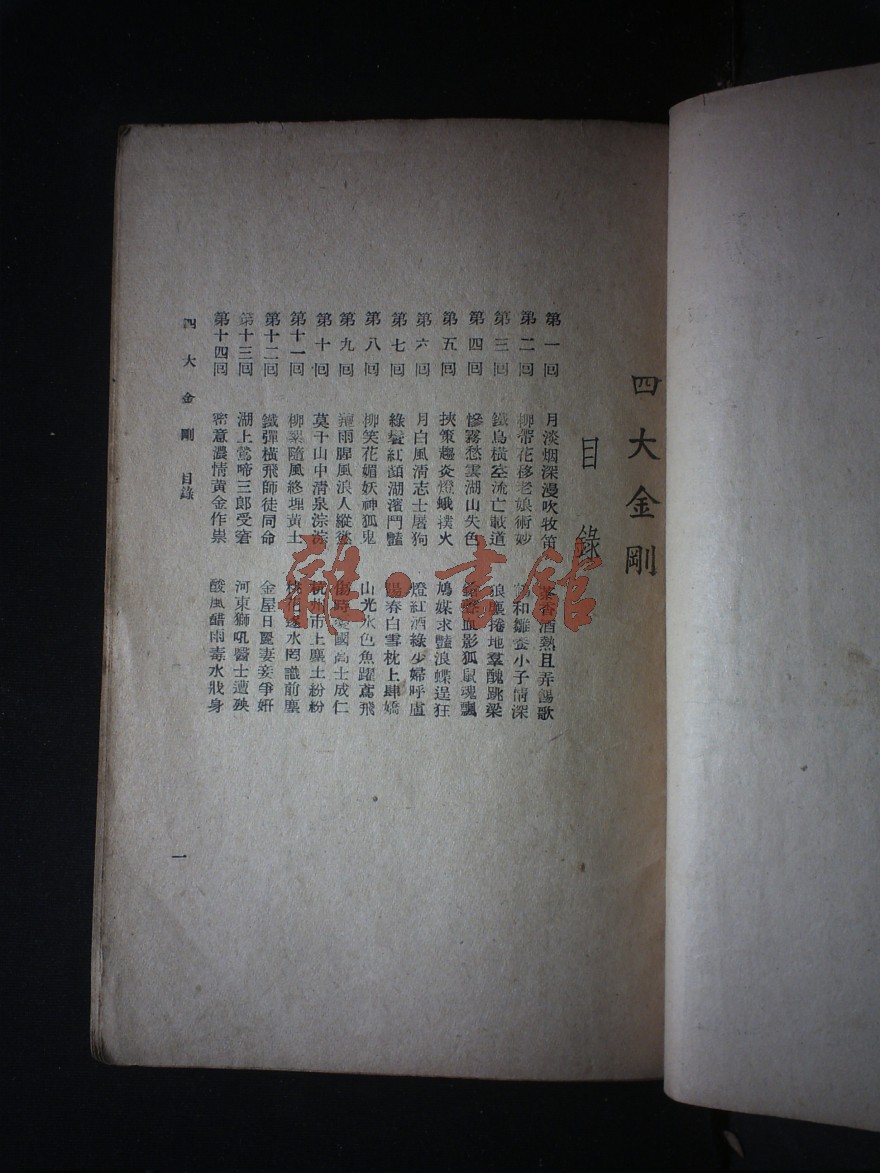 四大金剛
目錄
第一回 月淡烟深漫吹牧笛 香酒熱且弄鷁歌
第二回 柳帶花移老娘術妙 和雛養小子情深
第三回 鐵鳥橫空流亡載道 狼塵捲地羣醜跳梁
第四回 慘霧愁雲湖山失色 血影狐鼠魂飄
第五回 挾策趨炎燈蛾撲火 鳩媒求豔浪蝶逞狂
第六回 月白風清志士屠狗 燈紅酒綠少婦呼盧
第七回 綠鬢紅顏湖濱鬥豔 陽春白雪枕上肆嬌
第八回 柳笑花媚妖神狐鬼 山光水色魚躍鳶飛
第九回 雨腥風浪人縱慾 傷時憂國高士成仁
第十回 莫干山中清泉淙淙 杭州市上塵土紛紛
第十一回 柳絮隨風終埋黃土 桃花逐水罔識前塵
第十二回 鐵彈橫飛師徒同命 金屋日麗妻妾爭妍
第十三回 湖上鶯啼三郎受窘 河東獅吼醫士遭殃
第十四回 密意濃情黃金作祟 酸風醋雨毒水戕身
四大金剛 目錄
一
龍·書館